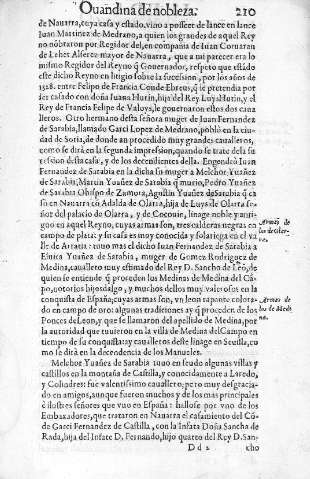 Ouandina de nobleza. 210
de Nauarra, cuya casa y estado, vino a posseer de lance en lance
Iuan Martinez de Medrano, a quien los grandes de aquel Rey
no nõbraron por Regidor del, en compañia de Iuan Corbaran
de Lehet Alferez mayor de Nauarra, que a mi parecer era lo
mismo Regidor del Reyno q̃ Gouernador, respeto que estādo
este dicho Reyno en litigio sobre la sucession, por los años de
1328. entre Felipe de Francia Conde Ebreus, q̃ le pretendia por
ser casado con doña Iuana Hutin, hija del Rey Luys Hutin, y el
Rey de Francia Felipe de Valoys, le gouernaron estos dos caua
lleros. Otro hermano desta señora muger de Iuan Fernandez
de Sarabia, llamado Garci Lopez de Medrano, poblò en la ciu-
dad de Soria, de donde an procedido muy grandes caualleros,
como se dirà en la segunda impression, quando se trate de la su
cession desta casa, y de los decendientes della. Engendrò Iuan
Fernandez de Sarabia en la dicha su muger a Melchor Yuañez
de Sarabia, Martin Yuañez de Sarabia q̃ murio, Pedro Yuañez
de Sarabia Obispo de Zamora, Agustin Yuañez de Sarabia q̃ ca
sò en Nauarra cō Adalda de Olarra, hija de Luys de Olarra se-
ñor del palacio de Olarra, y de linage noble y anti-
guo en aquel Reyno, cuyas armas son, tres calderas negras en
campo de plata: y su casa es muy conocida y solariega en el va
lle de Araiza: tuuo mas el dicho Iuan Fernandez de Sarabia a
Eluira Yuañez de Sarabia, muger de Gomez Rodriguez de
Medina, cauallero muy estimado del Rey D. Sancho de Leõ, de
quien se entiende q̃ proceden los Medinas de Medina del Cã-
po, notorios hijosdalgo, y muchos dellos muy valerosos en la
conquista de España, cuyas armas son, vn leon rapante colora-
do en campo de oro: algunas tradiciones ay q̃ proceden de los
Ponces de Leon, y que se llamaron del apellido de Medina, por
la autoridad que tuuieron en la villa de Medina del Campo en
tiempo de su conquista: ay caualleros deste linage en Seuilla, co
mo se dirà en la decendencia de los Manueles.
Melchor Yuañes de Sarabia tuuo en feudo algunas villas y
castillos en la mōtaña de Castilla, y conocidamente a Laredo,
y Colindres: fue valentissimo cauallero; pero muy desgracia-
do en amigos, aunque fueron muchos y de los mas principales
è ilustres señores que vuo en España: hallose por vno de los
Embaxadores, que trataron en Nauarra el casamiento del Cō-
de Garci Fernandez de Castilla, con la Infāta Doña Sancha de
Rada, hija del Infāte D. Fernando, hijo quarto del Rey D. San-
D d 2 cho
Armas de
Armas de
los de Medi
na.